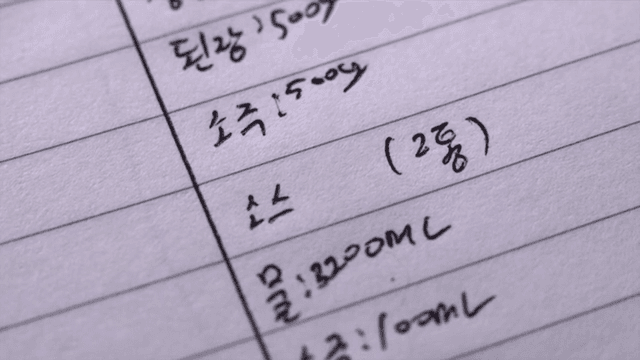 된장:500g
소주:500g
(2통)
소스
물:3200mL
:100mL